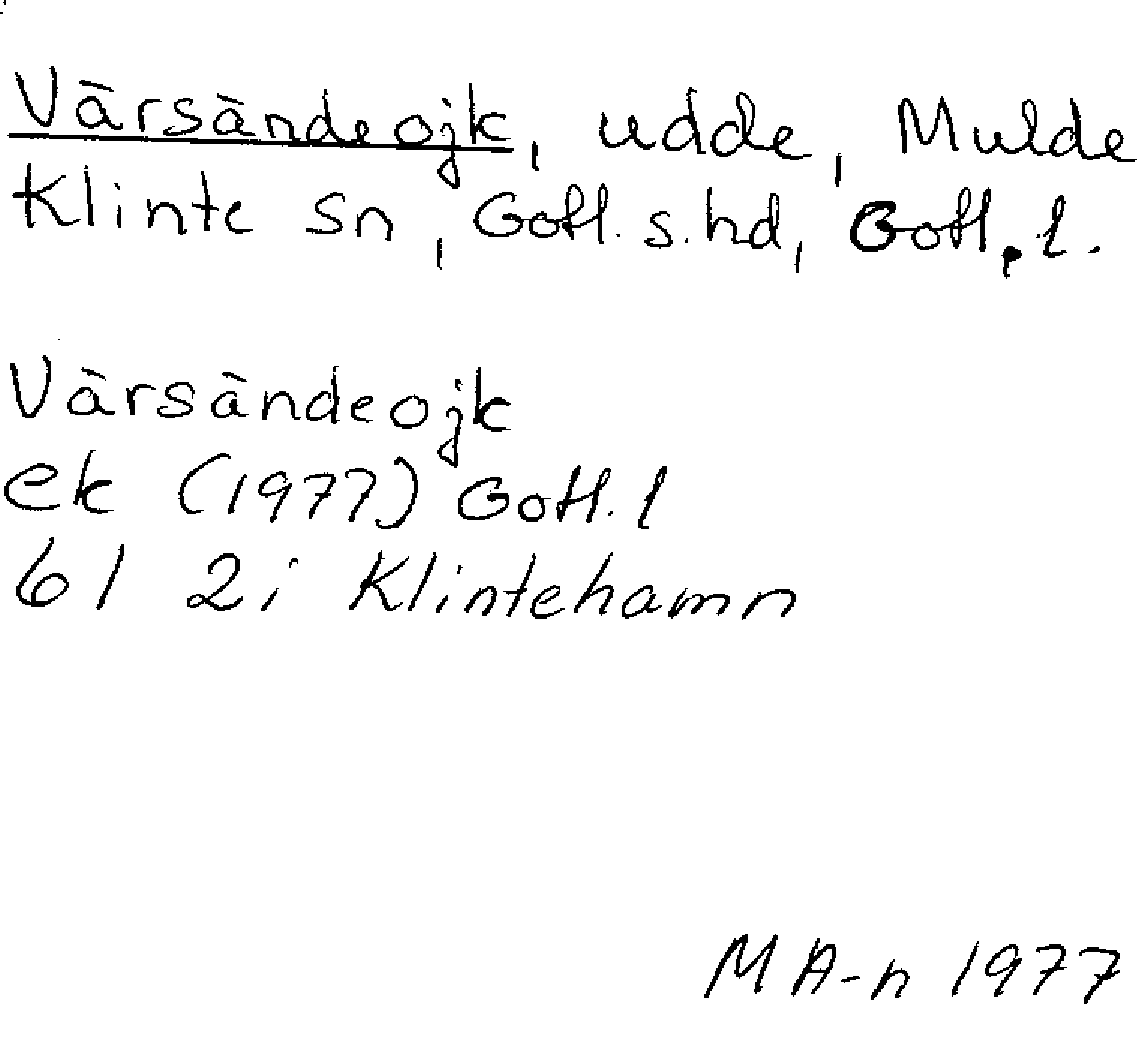 Värsändeojk, udde, Mulde
Klinte sn, Gotl. s. hd, Gotl. l.
Värsändeojk
ek (1977) Gotl. l
6I 2i Klintehamn
MA-n 1977